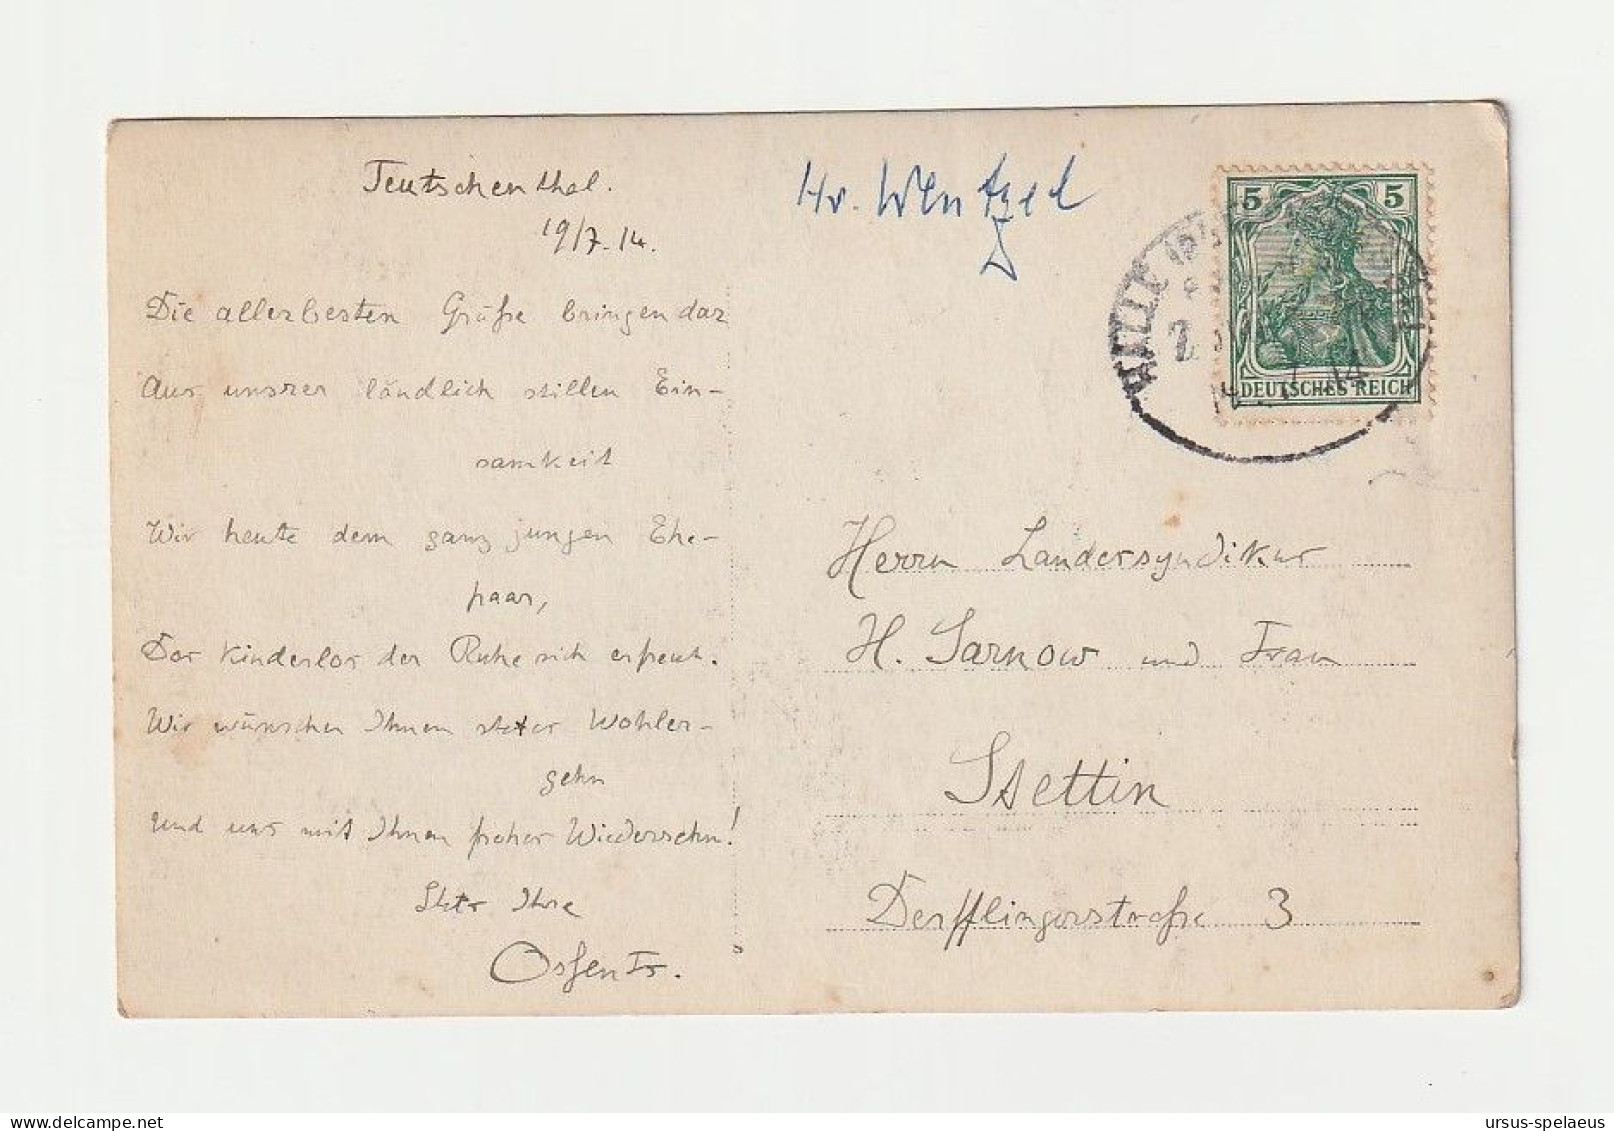 Teutschenthal.
19/7.14.
Die allerbesten Grüße bringen dar
Aus unsrer ländlich stillen Ein-
samkeit
Wir heute dem ganz jungen Ehe-
paar,
Das kinderlos der Ruhe sich erfreut.
Wir wünschen Ihnen stetes Wohler-
gehn
Und uns mit Ihnen frohes Wiedersehn!
Stets Ihre
Hr. Wentzel
5 5
DEUTSCHES REICH
HALLE
Herrn Landessyndikus
H. Sarnow und Frau
Stettin
Derfflingerstraße 3
ursus-spelaeus